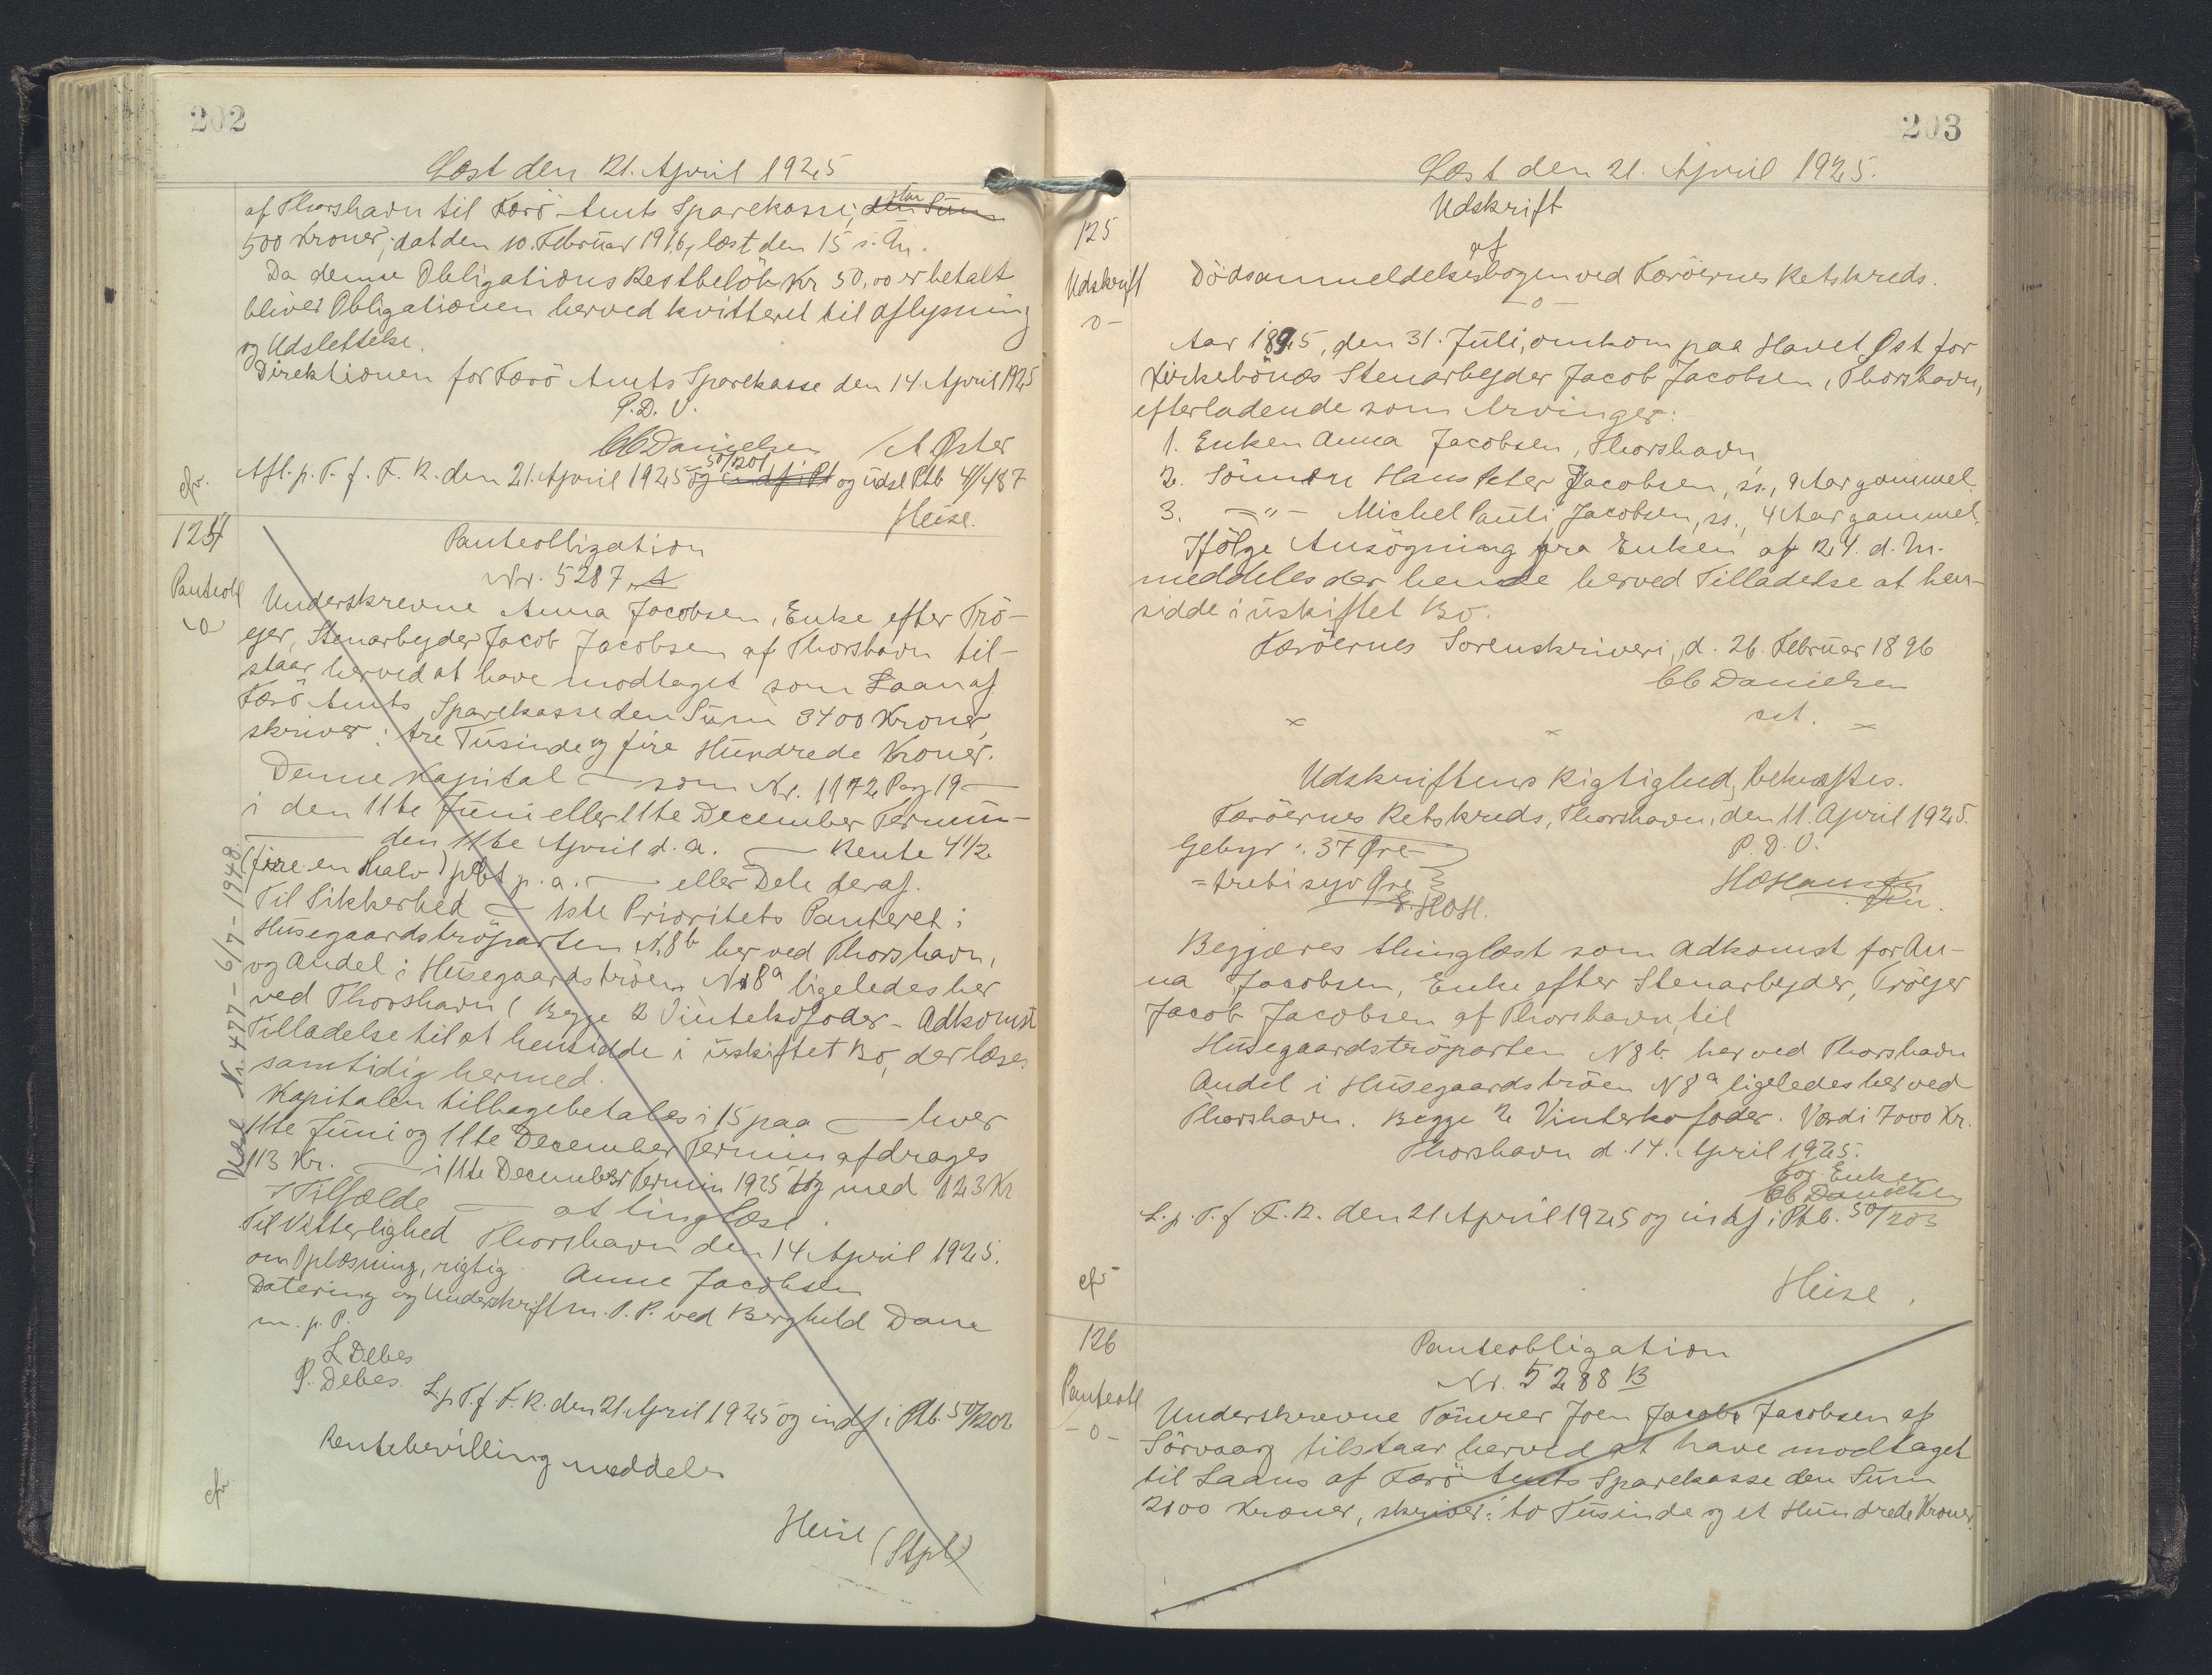 202
Læst den 21. April 1925
af Thorshavn til Færö Amts Sparekasse, den Sum
stor
500 Kroner, dat den 10. Februar 1916, læst den 15 s. M.
Da denne Obligations Restbelöb Kr 50,00 er betalt
bliver Obligationen herved kvitteret til aflysning
og Udslettelse.
Direktionen for Færö Amts Sparekasse den 14. April 1925
P. D. V.
CC Danielsen A Øster
cfr. Afl. p. T. f. F. R. den 21. April 1925 og indf i Pt og udsl Ptb 41/487
50/201
Heise.
124
Panteobl
-o-
Panteobligation
Nr. 5287 A
Underskrevne Anna Jacobsen, Enke efter Trö-
ejer, Stenarbejder Jacob Jacobsen af Thorshavn til-
staar herved at have modtaget som Laan af
Færö Amts Sparekasse den Sum 3400 Kroner,
skriver: tre Tusinde og fire Hundrede Kroner.
Denne Kapital — som Nr. 1172 Pag 19 —
i den 11te Juni eller 11te December Termin —
— den 11te April d. a. — Rente 4 1/2
(fire en halv) pCt p. a. — eller Dele deraf.
Til Sikkerhed — 1ste Prioritets Panteret i
Husegaardströparten N. 8b her ved Thorshavn,
og Andel i Husegaardströen N 8a ligeledes her
ved Thorshavn (Begge 2 Vintekofoder - Adkomst
Tilladelse til at hensidde i uskiftet Bo, der læses
samtidig hermed.
Kapitalen tilbagebetales i 15 paa — hver
11te Juni og 11te December Termin afdrages
113 Kr. — i 11te December Termin 1925 og med 123 Kr
I Tilfælde — at tinglæse.
Til Vitterlighed Thorshavn den 14 April 1925.
om Oplæsning, rigtig Anne Jacobsen
Datering og Underskrift m. P. P. ved Berghild Dam
m. p. P.
L Debes
P. Debes.
L. p. T. f. F. R. den 21 April 1925 og indf i Ptb. 50/202
Rentebevilling meddeles
cfr.
Heise (Stpl)
Udsl Nr. 477 - 6/7 - 1948
203
Læst den 21. April 1925.
125
Udskrift
-o-
Udskrift
af
Dödsanmeldelsesbogen ved Færöernes Retskreds.
-o-
Aar 1895, den 31. Juli, omkom paa Havet Øst for
Kirkebönæs Stenarbejder Jacob Jacobsen, Thorshavn,
efterladende som Arvinger:
1. Enken Anna Jacobsen, Thorshavn
2. Sönnen Hans Peter Jacobsen, ss., 9 Aar gammel.
3. —"— Michel Pauli Jacobsen, ss., 4 Aar gammel.
Ifölge Ansögning fra Enken af 24. d. M.
meddeles der hende herved Tilladelse at hen-
sidde i uskiftet Bo.
Færöernes Sorenskriveri, d. 26. Februar 1896
CC Danielsen
cst.
Udskriftens Rigtighed bekræftes.
Færöernes Retskreds, Thorshavn, den 11. April 1925.
Gebyr: 37 Øre P. D. V.
= treti syv Øre HCHansen
HCH. Fm.
Begjæres thinglæst som Adkomst for An-
na Jacobsen, Enke efter Stenarbejder, Tröejer
Jacob Jacobsen af Thorshavn, til
Husegaardströparten N 8b her ved Thorshavn
Andel i Husegaardströen N 8a ligeledes her ved
Thorshavn. Begge 2 Vinterkofoder. Værdi 7000 Kr.
Thorshavn d. 14. April 1925.
For Enken
CC Danielsen
L. p. T. f. F. R. den 21 April 1925 og indf i Ptb. 50/203
cfr
Heise.
126
Panteobl
-o-
Panteobligation
Nr. 5288 B
Underskrevne Tömrer Joen Jacob Jacobsen af
Sörvaag tilstaar herved at have modtaget
til Laans af Færö Amts Sparekasse den Sum
2100 Kroner, skriver: to Tusinde og et Hundrede Kroner.